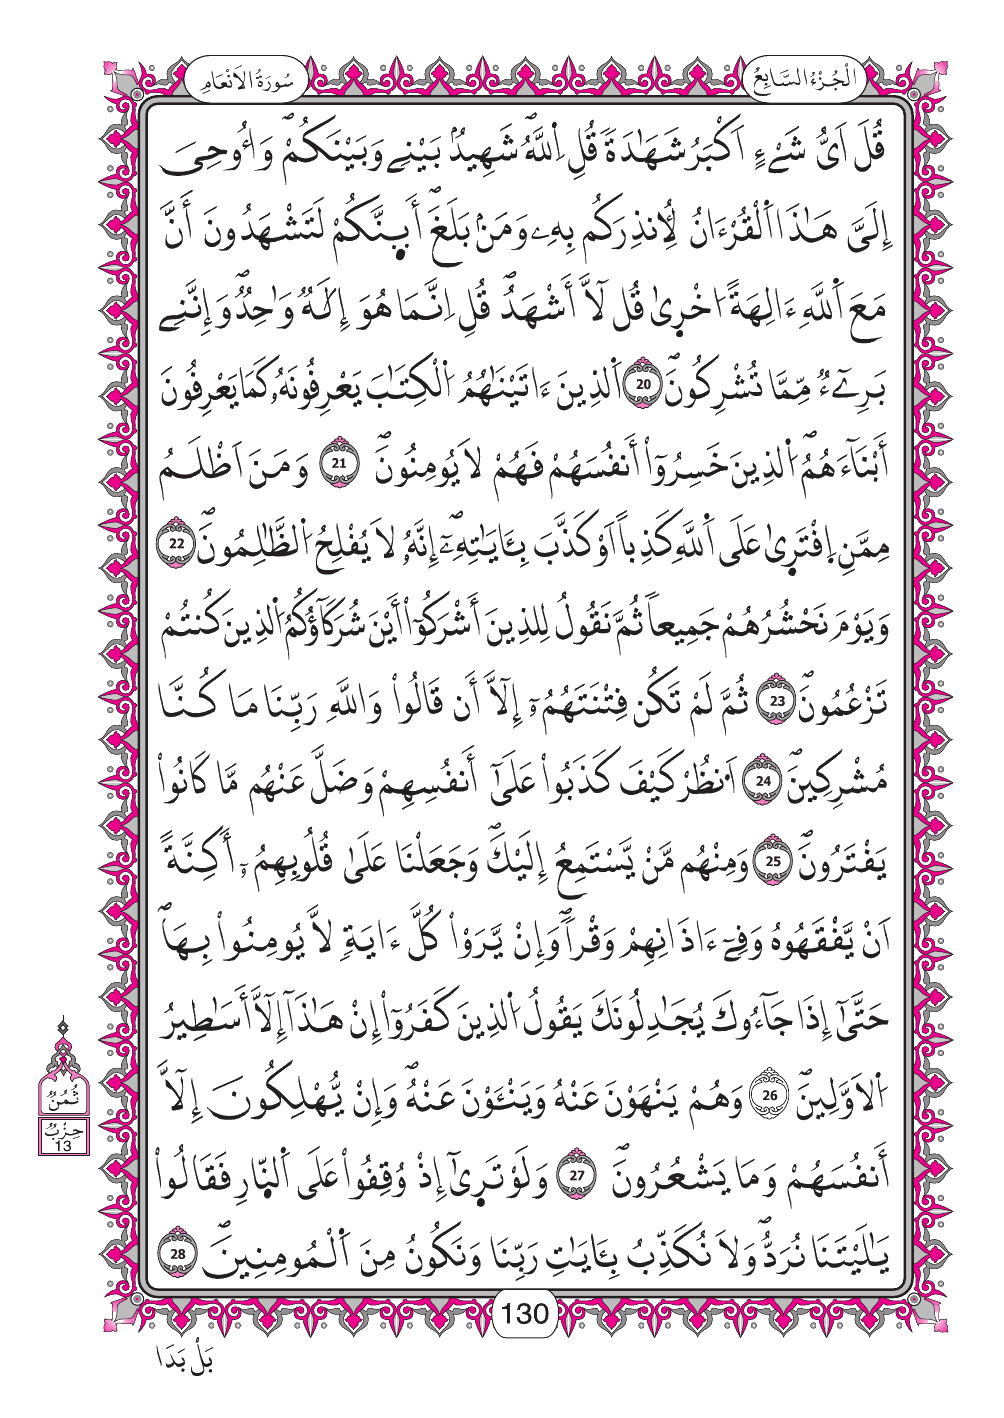 الْجُزْءُ السَّابِعُ
سُورَةُ الْاَنْعَامِ
قُلَ اَيُّ شَےْءٍ اَكْبَرُ شَهَٰدَةٗ قُلِ اِ۬للَّهُۖ شَهِيدُۢ بَيْنِے وَبَيْنَكُمْۖ وَأُوحِيَ
إِلَيَّ هَٰذَا اَ۬لْقُرْءَانُ لِأُنذِرَكُم بِهِۦ وَمَنۢ بَلَغَۖ أَى۪نَّكُمْ لَتَشْهَدُونَ أَنَّ
مَعَ اَ۬للَّهِ ءَالِهَةً ا۟خْر۪يٰ قُل لَّآ أَشْهَدُۖ قُلِ اِنَّمَا هُوَ إِلَٰهٞ وَٰحِدٞ وَإِنَّنِے
بَرِےٓءٞ مِّمَّا تُشْرِكُونَۖ 20 اَ۬لذِينَ ءَاتَيْنَٰهُمُ اُ۬لْكِتَٰبَ يَعْرِفُونَهُۥ كَمَا يَعْرِفُونَ
أَبْنَآءَهُمُۖ اُ۬لذِينَ خَسِرُوٓاْ أَنفُسَهُمْ فَهُمْ لَا يُومِنُونَۖ 21 وَمَنَ اَظْلَمُ
مِمَّنِ اِ۪فْتَر۪يٰ عَلَى اَ۬للَّهِ كَذِباً اَوْ كَذَّبَ بِـَٔايَٰتِهِۦٓۖ إِنَّهُۥ لَا يُفْلِحُ اُ۬لظَّٰلِمُونَۖ 22
وَيَوْمَ نَحْشُرُهُمْ جَمِيعاٗ ثُمَّ نَقُولُ لِلذِينَ أَشْرَكُوٓاْ أَيْنَ شُرَكَآؤُكُمُ اُ۬لذِينَ كُنتُمْ
تَزْعُمُونَۖ 23 ثُمَّ لَمْ تَكُن فِتْنَتَهُمُۥٓ إِلَّآ أَن قَالُواْ وَاللَّهِ رَبِّنَا مَا كُنَّا
مُشْرِكِينَۖ 24 اَ۟نظُرْ كَيْفَ كَذَبُواْ عَلَىٰٓ أَنفُسِهِمْ وَضَلَّ عَنْهُم مَّا كَانُواْ
يَفْتَرُونَۖ 25 وَمِنْهُم مَّنْ يَّسْتَمِعُ إِلَيْكَۖ وَجَعَلْنَا عَلَىٰ قُلُوبِهِمُۥٓ أَكِنَّةً
اَنْ يَّفْقَهُوهُ وَفِےٓ ءَاذَانِهِمْ وَقْراٗۖ وَإِنْ يَّرَوْاْ كُلَّ ءَايَةٖ لَّا يُومِنُواْ بِهَاۖ
حَتَّىٰٓ إِذَا جَآءُوكَ يُجَٰدِلُونَكَ يَقُولُ اُ۬لذِينَ كَفَرُوٓاْ إِنْ هَٰذَآ إِلَّآ أَسَٰطِيرُ
اُ۬لَاوَّلِينَۖ 26 وَهُمْ يَنْهَوْنَ عَنْهُ وَيَنْـَٔوْنَ عَنْهُۖ وَإِنْ يُّهْلِكُونَ إِلَّآ
أَنفُسَهُمْ وَمَا يَشْعُرُونَۖ 27 وَلَوْ تَر۪ىٰٓ إِذْ وُقِفُواْ عَلَى اَ۬لنّ۪ارِ فَقَالُواْ
يَٰلَيْتَنَا نُرَدُّۖ وَلَا نُكَذِّبُ بِـَٔايَٰتِ رَبِّنَا وَنَكُونُ مِنَ اَ۬لْمُومِنِينَۖ 28
ثُمُنُ
حِزْبُ
13
130
بَلْ بَدَا